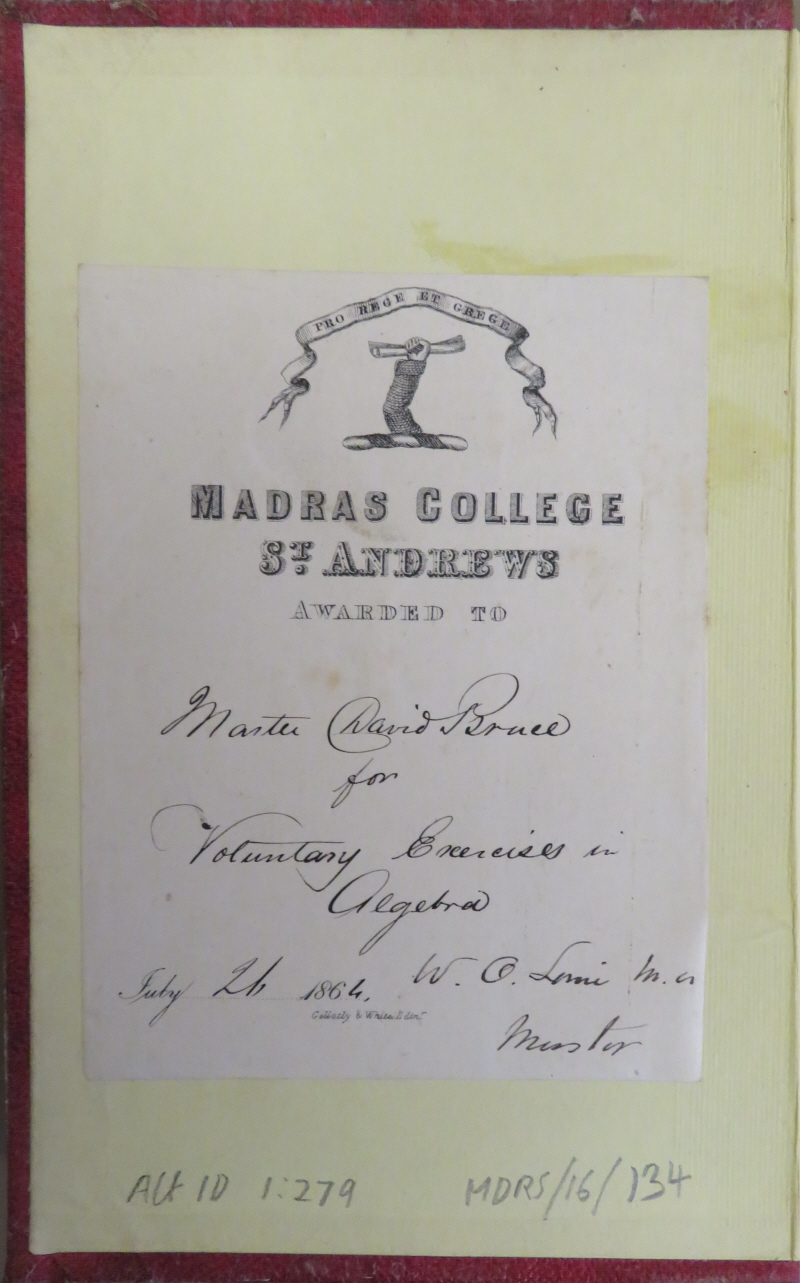 PRO REGE ET GREGE
MADRAS COLLEGE
ST. ANDREWS
AWARDED TO
Master David Bruce
for
Voluntary Exercises in
Algebra
July 26 1864. W. O. Lorrie M.A
Master
Alt ID 1:279 MDRS/16/134